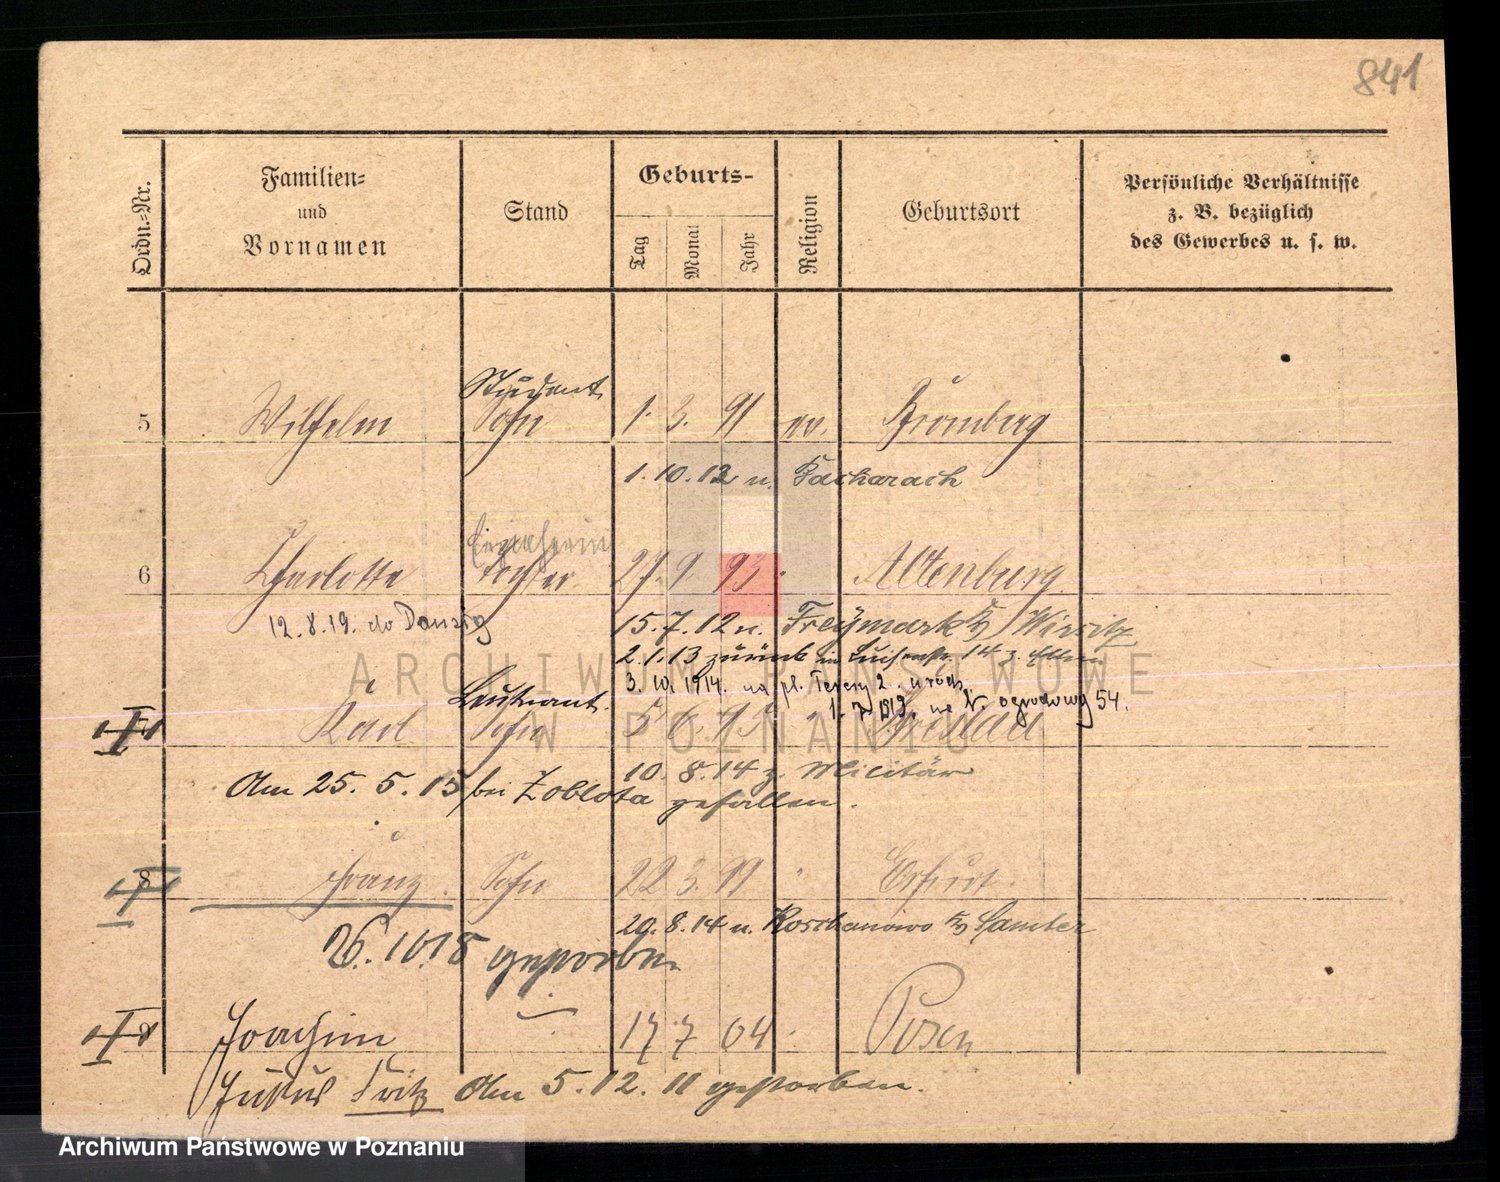 841
Ordn.-Nr.
Familien-
und
Vornamen
Stand
Geburts-
Tag
Monat
Jahr
Religion
Geburtsort
Persönliche Verhältnisse
z. B. bezüglich
des Gewerbes u. s. w.
Student
5 Wilhelm Sohn 1. 3. 91 ev. Bromberg
1. 10. 12 n. Bacharach
6 Charlotte Tochter 27. 9. 93 Altenburg
12.8.19. do Danzig
15. 7. 12 n. Freymark Wirsitz
2. 1. 13 zurück in Luisenstr. 14 z.
3. 10. 1914. na pl.
1. 1919. na ogrodowy 54.
Leutnant
Karl Sohn 5 6. 95
10. 8. 14 z. Militär
Am 25. 5. 15 bei Zoblota gefallen.
8 Franz Sohn 22 3. 99 Erfurt.
20. 8. 14 n. Samter
26. 10.18 gestorben
Joachim 17 7 04 Posen
Julius Fritz Am 5. 12. 11 gestorben.
ARCHIWUM PAŃSTWOWE
W POZNANIU
Archiwum Państwowe w Poznaniu